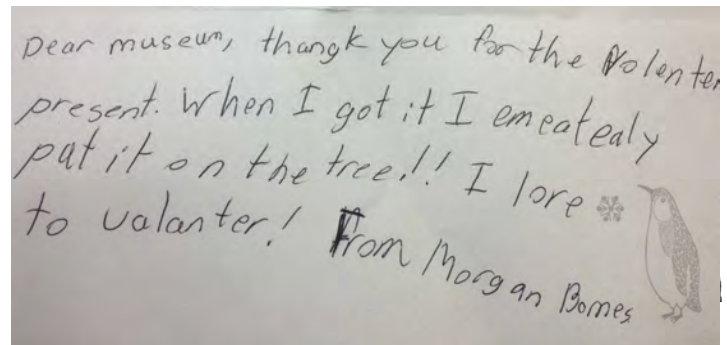 Dear museum, thangk you for the Volenter
present. When I got it I emeatealy
put it on the tree!! I love
to valanter! From Morgan Bomes